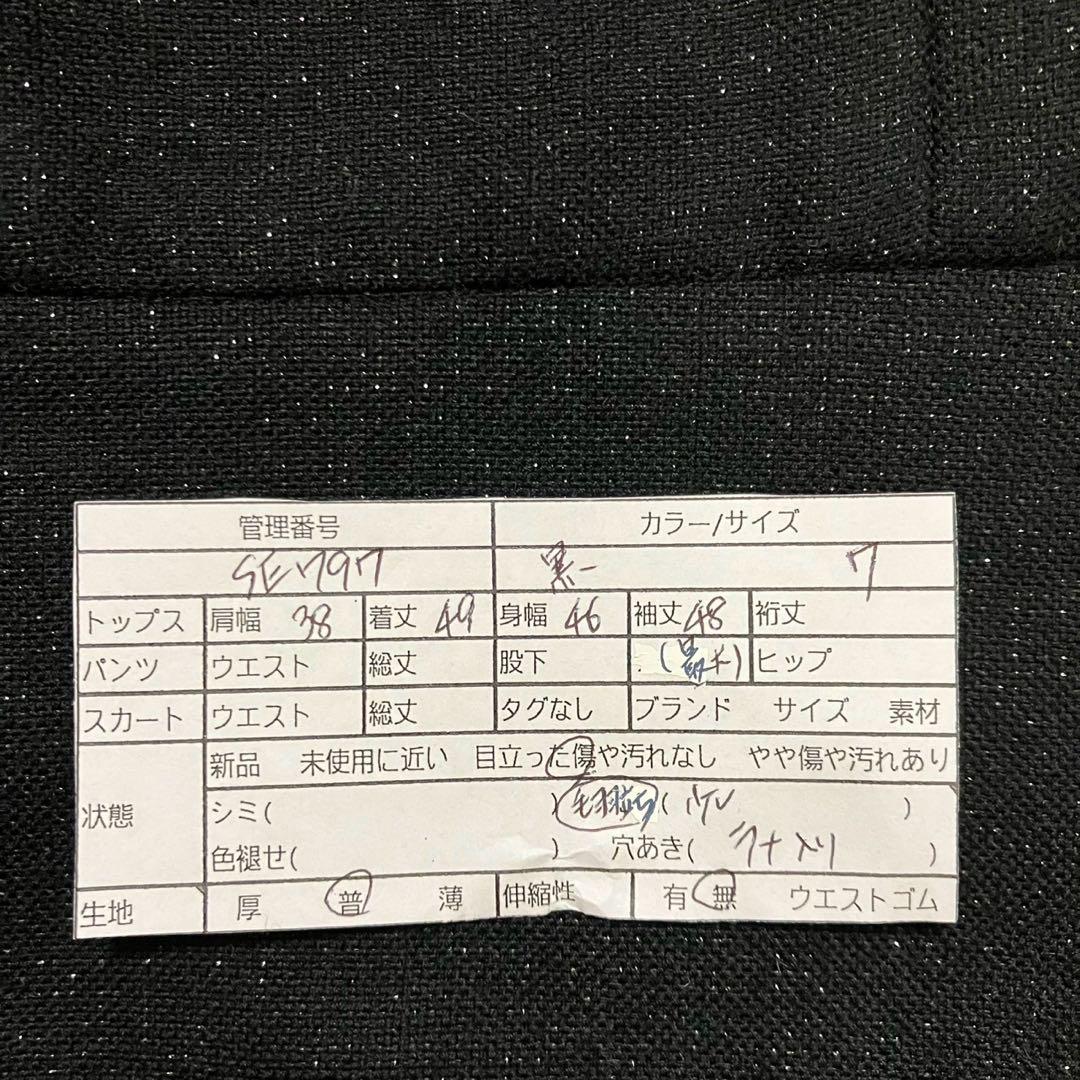 管理番号 カラー/サイズ
SE797 黒 7
トップス 肩幅 38 着丈 49 身幅 46 袖丈 48 裄丈
パンツ ウエスト 総丈 股下 ヒップ
スカート ウエスト 総丈 タグなし ブランド サイズ 素材
新品 未使用に近い 目立った傷や汚れなし やや傷や汚れあり
状態 シミ( ) 毛羽立ち ( )
色褪せ( ) 穴あき( ラナメリ )
生地 厚 普 薄 伸縮性 有 無 ウエストゴム